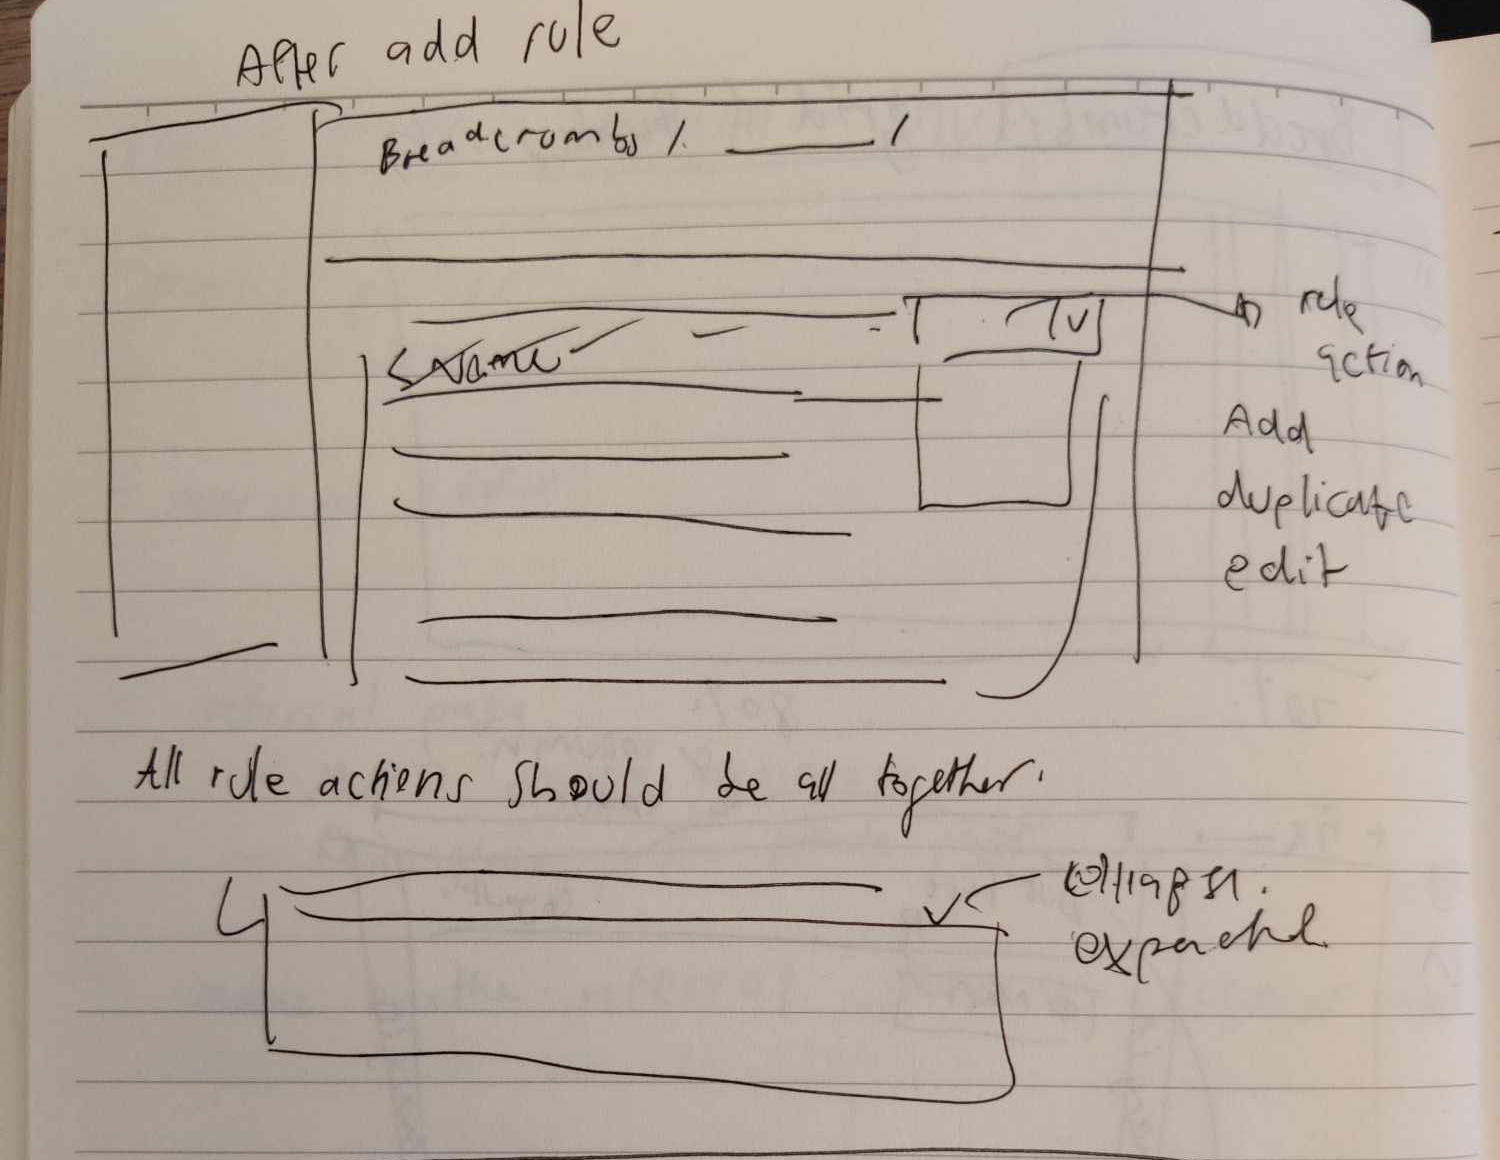 After add rule
Breadcrumbs / ______ /
Name
rule
action
Add
duplicate
edit
All rule actions should be all together.